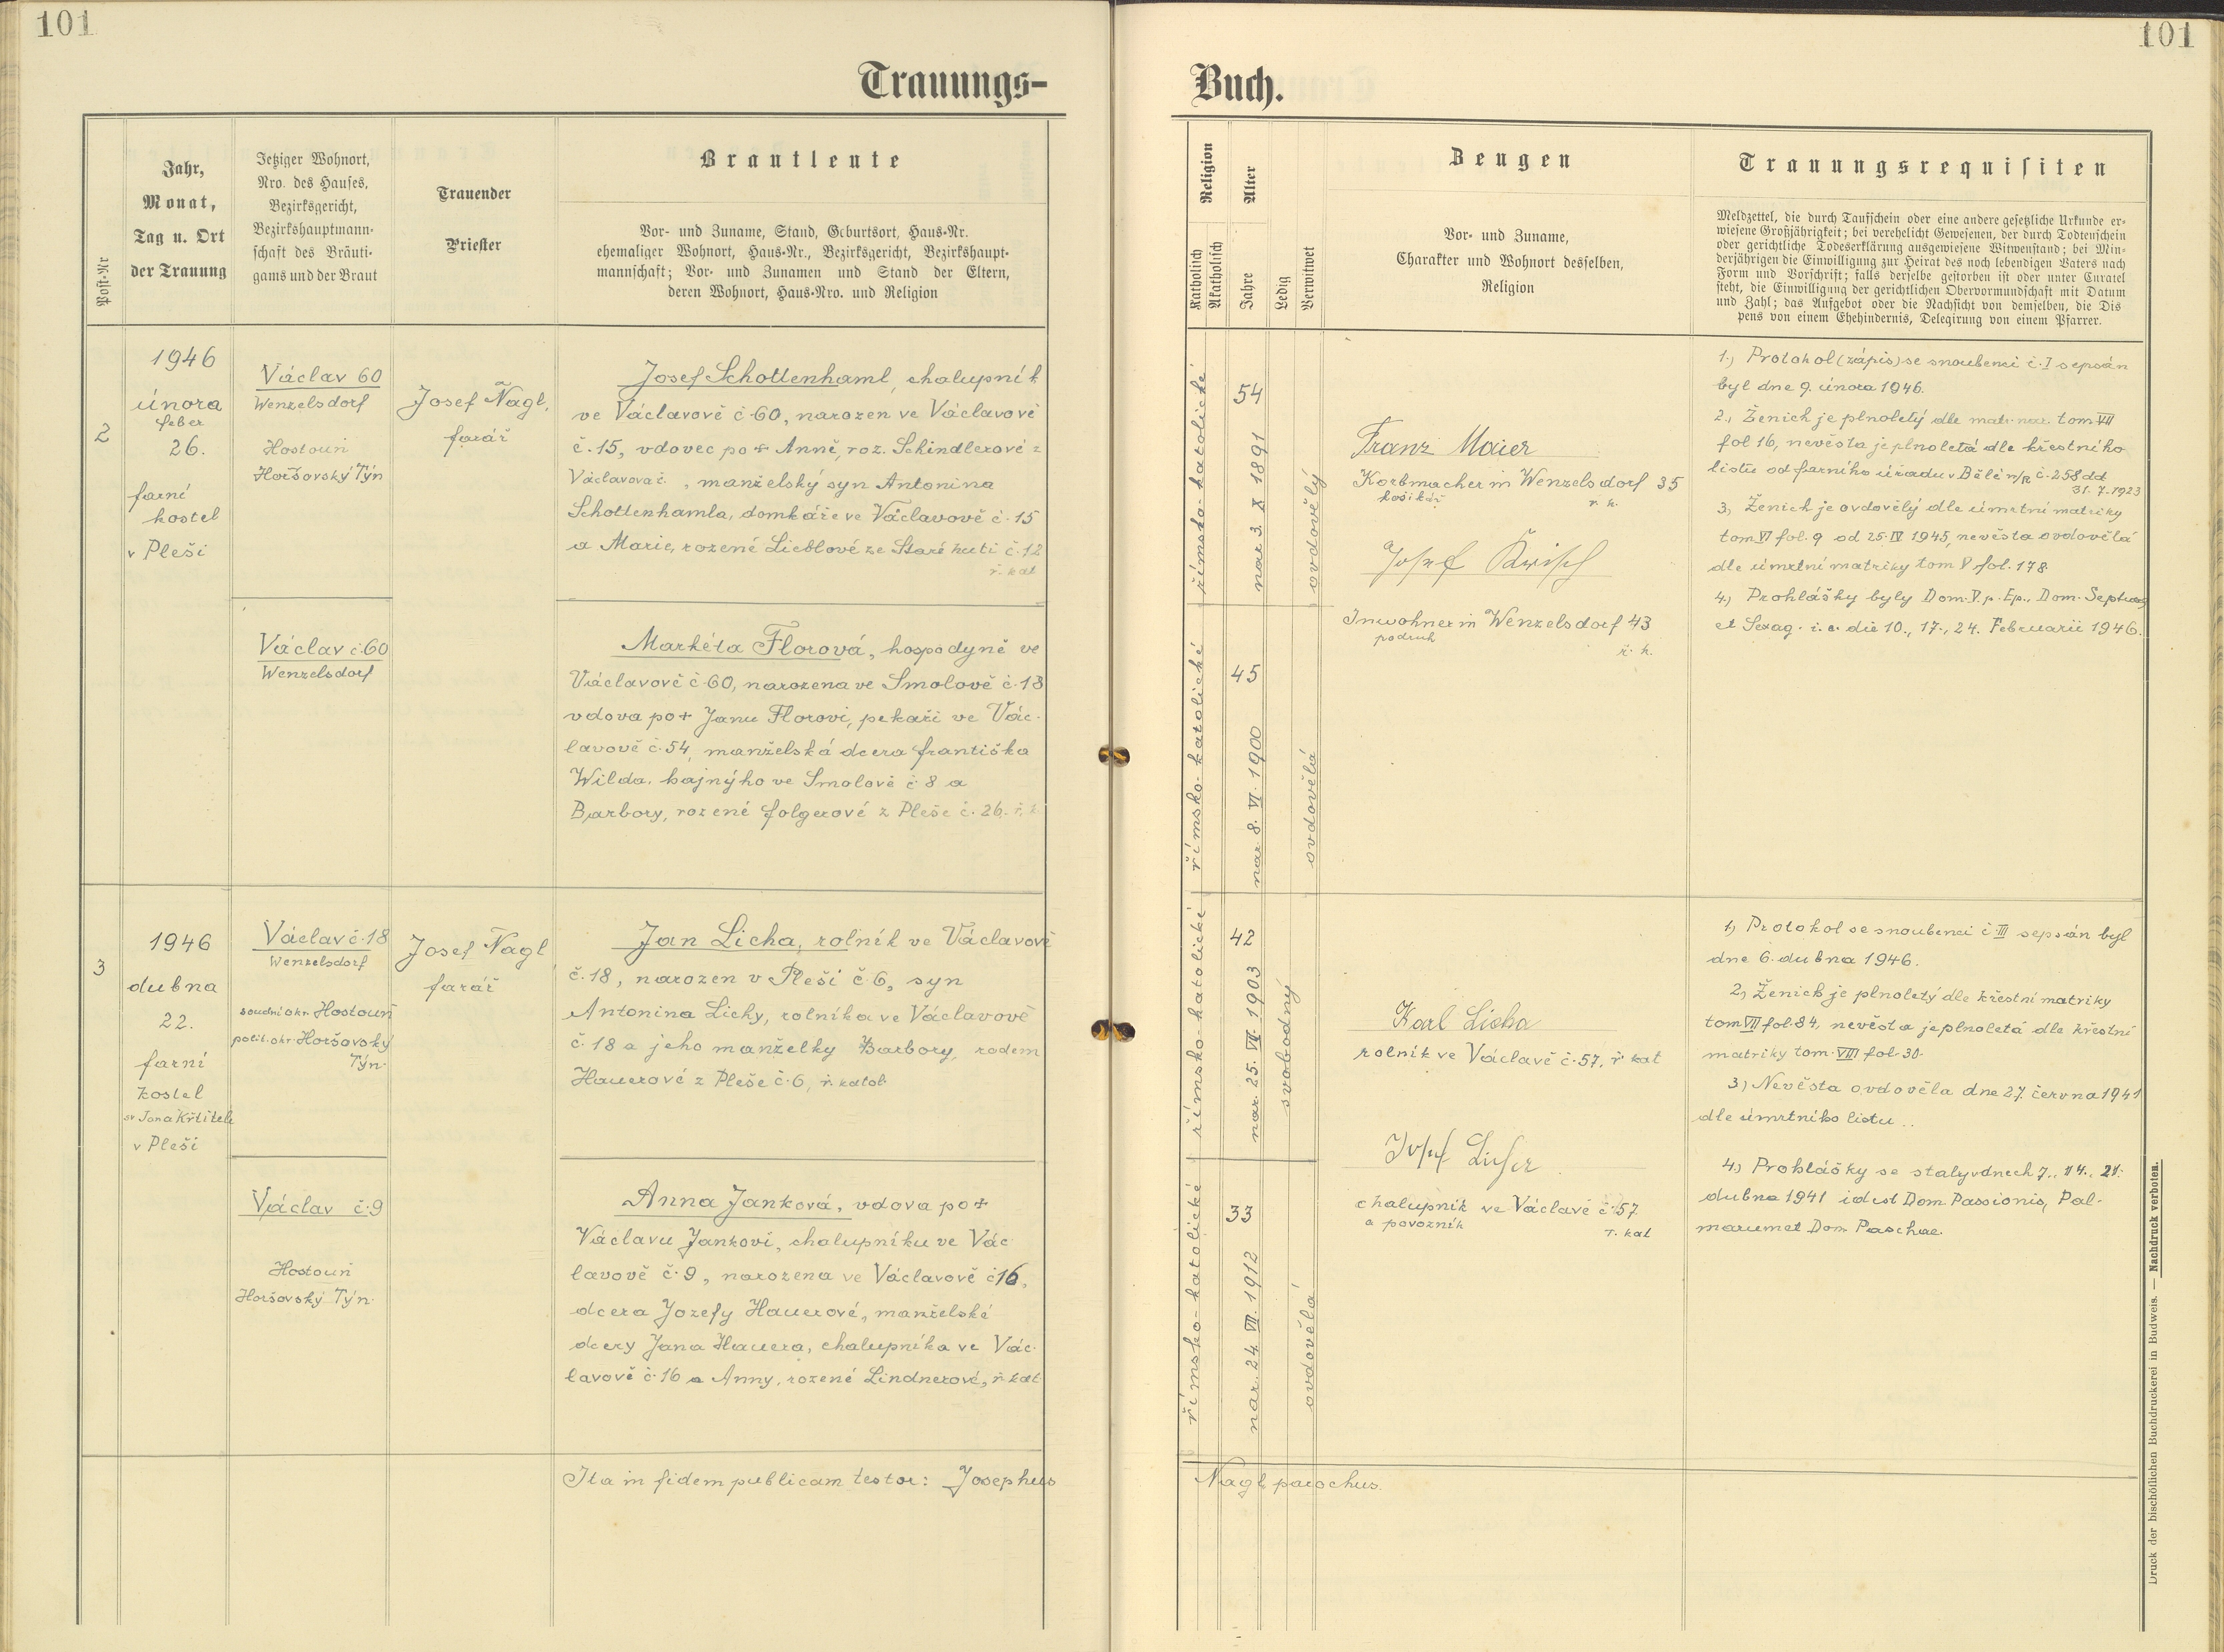 101
101
Trauungs-
Buch.
Post-Nr
Jahr,
Monat,
Tag u. Ort
der Trauung
Jetziger Wohnort,
Nro. des Hauses,
Bezirksgericht,
Bezirkshauptmann-
schaft des Bräuti-
gams und der Braut
Trauender
Priester
Brautleute
Vor- und Zuname, Stand, Geburtsort, Haus-Nr.
ehemaliger Wohnort, Haus-Nr., Bezirksgericht, Bezirkshaupt-
mannschaft; Vor- und Zunamen und Stand der Eltern,
deren Wohnort, Haus-Nro. und Religion
Religion
Katholisch
Akatholisch
Alter
Jahre
Ledig
Verwitwet
Zeugen
Vor- und Zuname,
Charakter und Wohnort desselben,
Religion
Trauungsrequisiten
Meldzettel, die durch Taufschein oder eine andere gesetzliche Urkunde er-
wiesene Großjährigkeit; bei verehelicht Gewesenen, der durch Todtenschein
oder gerichtliche Todeserklärung ausgewiesene Witwenstand; bei Min-
derjährigen die Einwilligung zur Heirat des noch lebendigen Vaters nach
Form und Vorschrift; falls derselbe gestorben ist oder unter Curatel
steht, die Einwilligung der gerichtlichen Obervormundschaft mit Datum
und Zahl; das Aufgebot oder die Nachsicht von demselben, die Dis
pens von einem Ehehindernis, Delegirung von einem Pfarrer.
2
1946
února
feber
26.
farní
kostel
v Pleši
Václav 60
Wenzelsdorf
Hostouň
Horšovský Týn
Josef Nagl,
farář
Josef Schottenhaml, chalupník
ve Václavově č. 60, narozen ve Václavově
č. 15, vdovec po + Anně, roz. Schindlerové z
Václavova č. , manželský syn Antonina
Schottenhamla, domkáře ve Václavově č. 15
a Marie, rozené Lieblové ze Staré huti č. 12
ř. kat
římsko-katolické
54
nar 3. X 1891
ovdovělý
Franz Maier
Korbmacher in Wenzelsdorf 35
košikář
r. k.
Josef
Inwohner in Wenzelsdorf 43
podruh
ř. k.
1.) Protokol (zápis) se snoubenci č. I sepsán
byl dne 9. února 1946.
2., Ženich je plnoletý dle matr. nar. tom VII
fol 16, nevěsta je plnoletá dle křestního
listu od farního úřadu v Bělé n/R č. 258 dd
31. 7. 1923
3, Ženich je ovdovělý dle úmrtní matriky
tom VI fol. 9 od 25. IV 1945, nevěsta ovdovělá
dle úmrtní matriky tom V fol. 178.
4.) Prohlášky byly Dom. V. p. Ep., Dom. Septuag
et Sexag. i. e. die 10., 17., 24. Februarii 1946.
Václav č. 60
Wenzelsdorf
Markéta Florová, hospodyně ve
Václavově č. 60, narozena ve Smolově č. 18
vdova po + Janu Florovi, pekaři ve Vác-
lavově č. 54, manželská dcera františka
Wilda, hajného ve Smolově č. 8 a
Barbory, rozené folgerové z Pleše č. 26, ř. k.
římsko-katolické
45
nar 8. VI. 1900
ovdovělá
3
1946
dubna
22.
farní
kostel
sv Jana Křtitele
v Pleši
Václav č. 18
Wenzelsdorf
soudní okr. Hostouň
polit. okr. Horšovský
Týn.
Josef Nagl
farář
Jan Licha, rolník ve Václavově
č. 18, narozen v Pleši č. 6, syn
Antonina Lichy, rolníka ve Václavově
č. 18 a jeho manželky Barbory, rodem
Hauerové z Pleše č. 6, ř. katol.
římsko-katolické
42
nar. 25. VII. 1903
svobodný
Karl Licha
rolník ve Václavě č. 57. ř. kat
Josef
chalupník ve Václavě č. 57
a povozník
r. kat
1) Protokol se snoubenci č. III sepsán byl
dne 6. dubna 1946.
2) Ženich je plnoletý dle křestní matriky
tom VII fol. 84, nevěsta je plnoletá dle křestní
matriky tom. VIII fol. 30.
3) Nevěsta ovdověla dne 27. června 1941
dle úmrtního listu.
4) Prohlášky se staly v dnech 7., 14., 21.
dubna 1941 id est Dom Passionis, Pal-
marum et Dom Paschae.
Václav č. 9
Hostouň
Horšovský Týn.
Anna Janková, vdova po +
Václavu Jankovi, chalupníku ve Vác-
lavově č. 9, narozena ve Václavově č 16,
dcera Jozefy Hauerové, manželské
dcery Jana Hauera, chalupníka ve Vác-
lavově č. 16 a Anny, rozené Lindnerové, ř. kat
římsko-katolické
33
nar. 24. VII. 1912
ovdovělá
Ita in fidem publicam testor: Josephus
Nagl parochus.
Druck der bischöflichen Buchdruckerei in Budweis. — Nachdruck verboten.